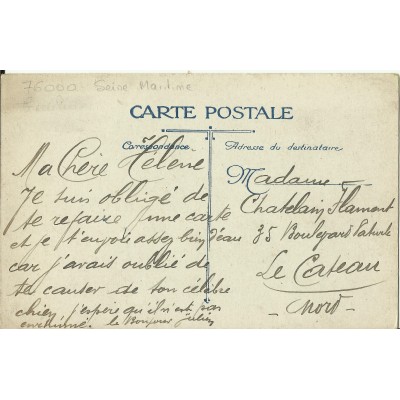 76000 Seine Maritime
CARTE POSTALE
Correspondance
Adresse du destinataire
Ma Chère Hélène
Je suis obligé de
te refaire une carte
et je t'envois assez bien
car j'avais oublié de
ta causer de ton célèbre
chien, j'espère qu'il n'est pas
enrhumé. le Bonjour Julien
Madame
Chatelain Flamant
35 Boulevard
Le Cateau
- Nord -